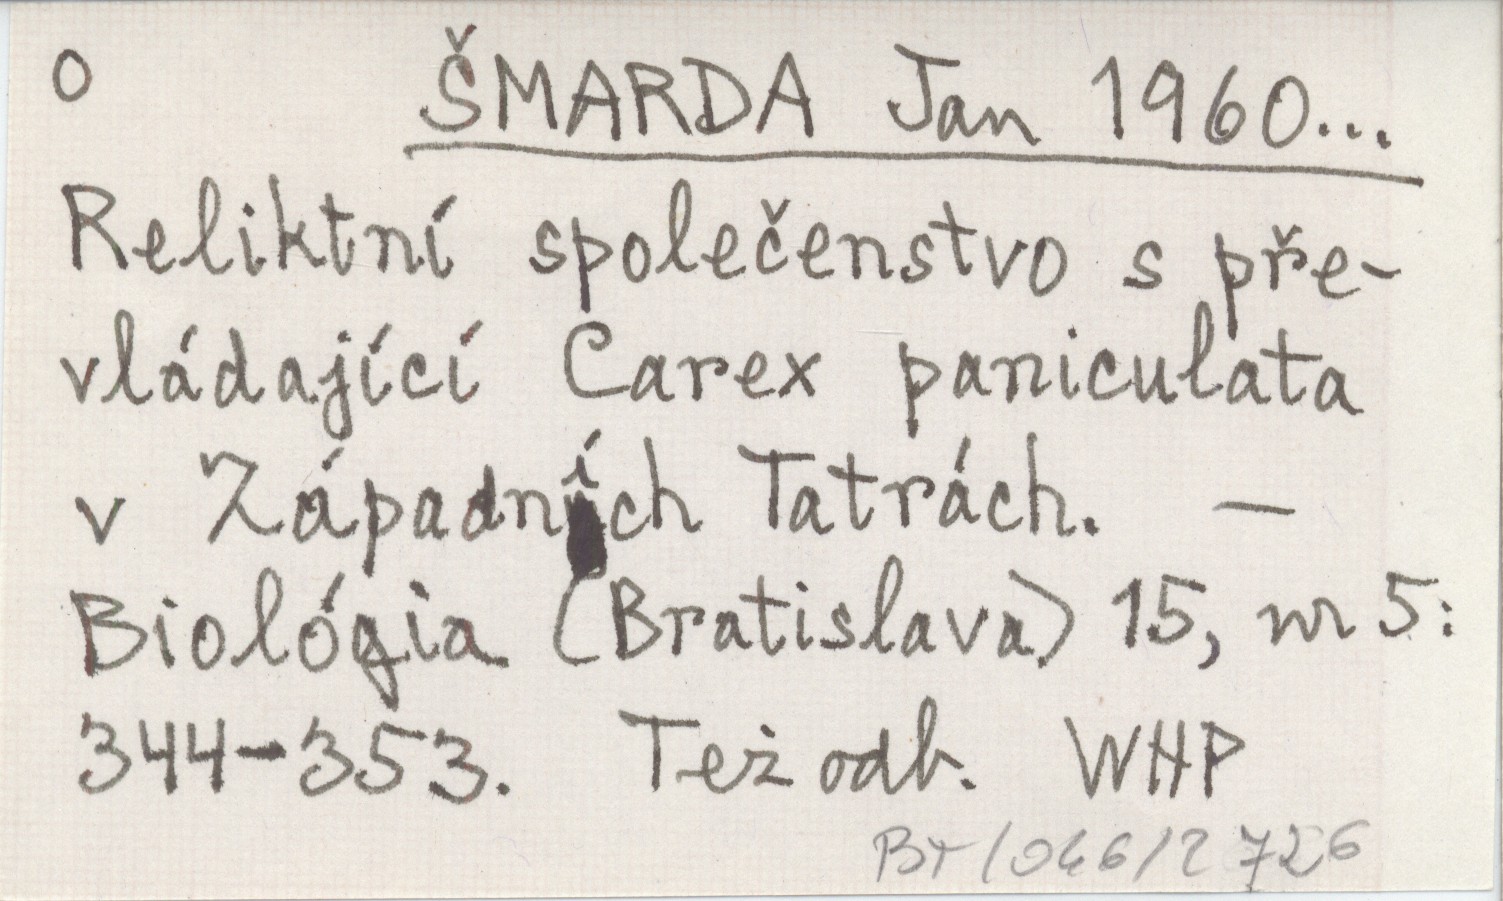 O ŠMARDA Jan 1960...
Reliktní společenstvo s pře-
vládající Carex paniculata
v Západních Tatrách. —
Biológia (Bratislava) 15, nr 5:
344-353. Też odb. WHP